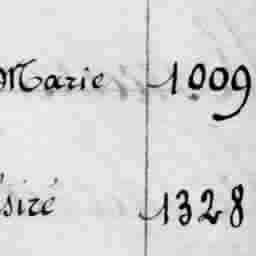 Marie 1009
siré 1328